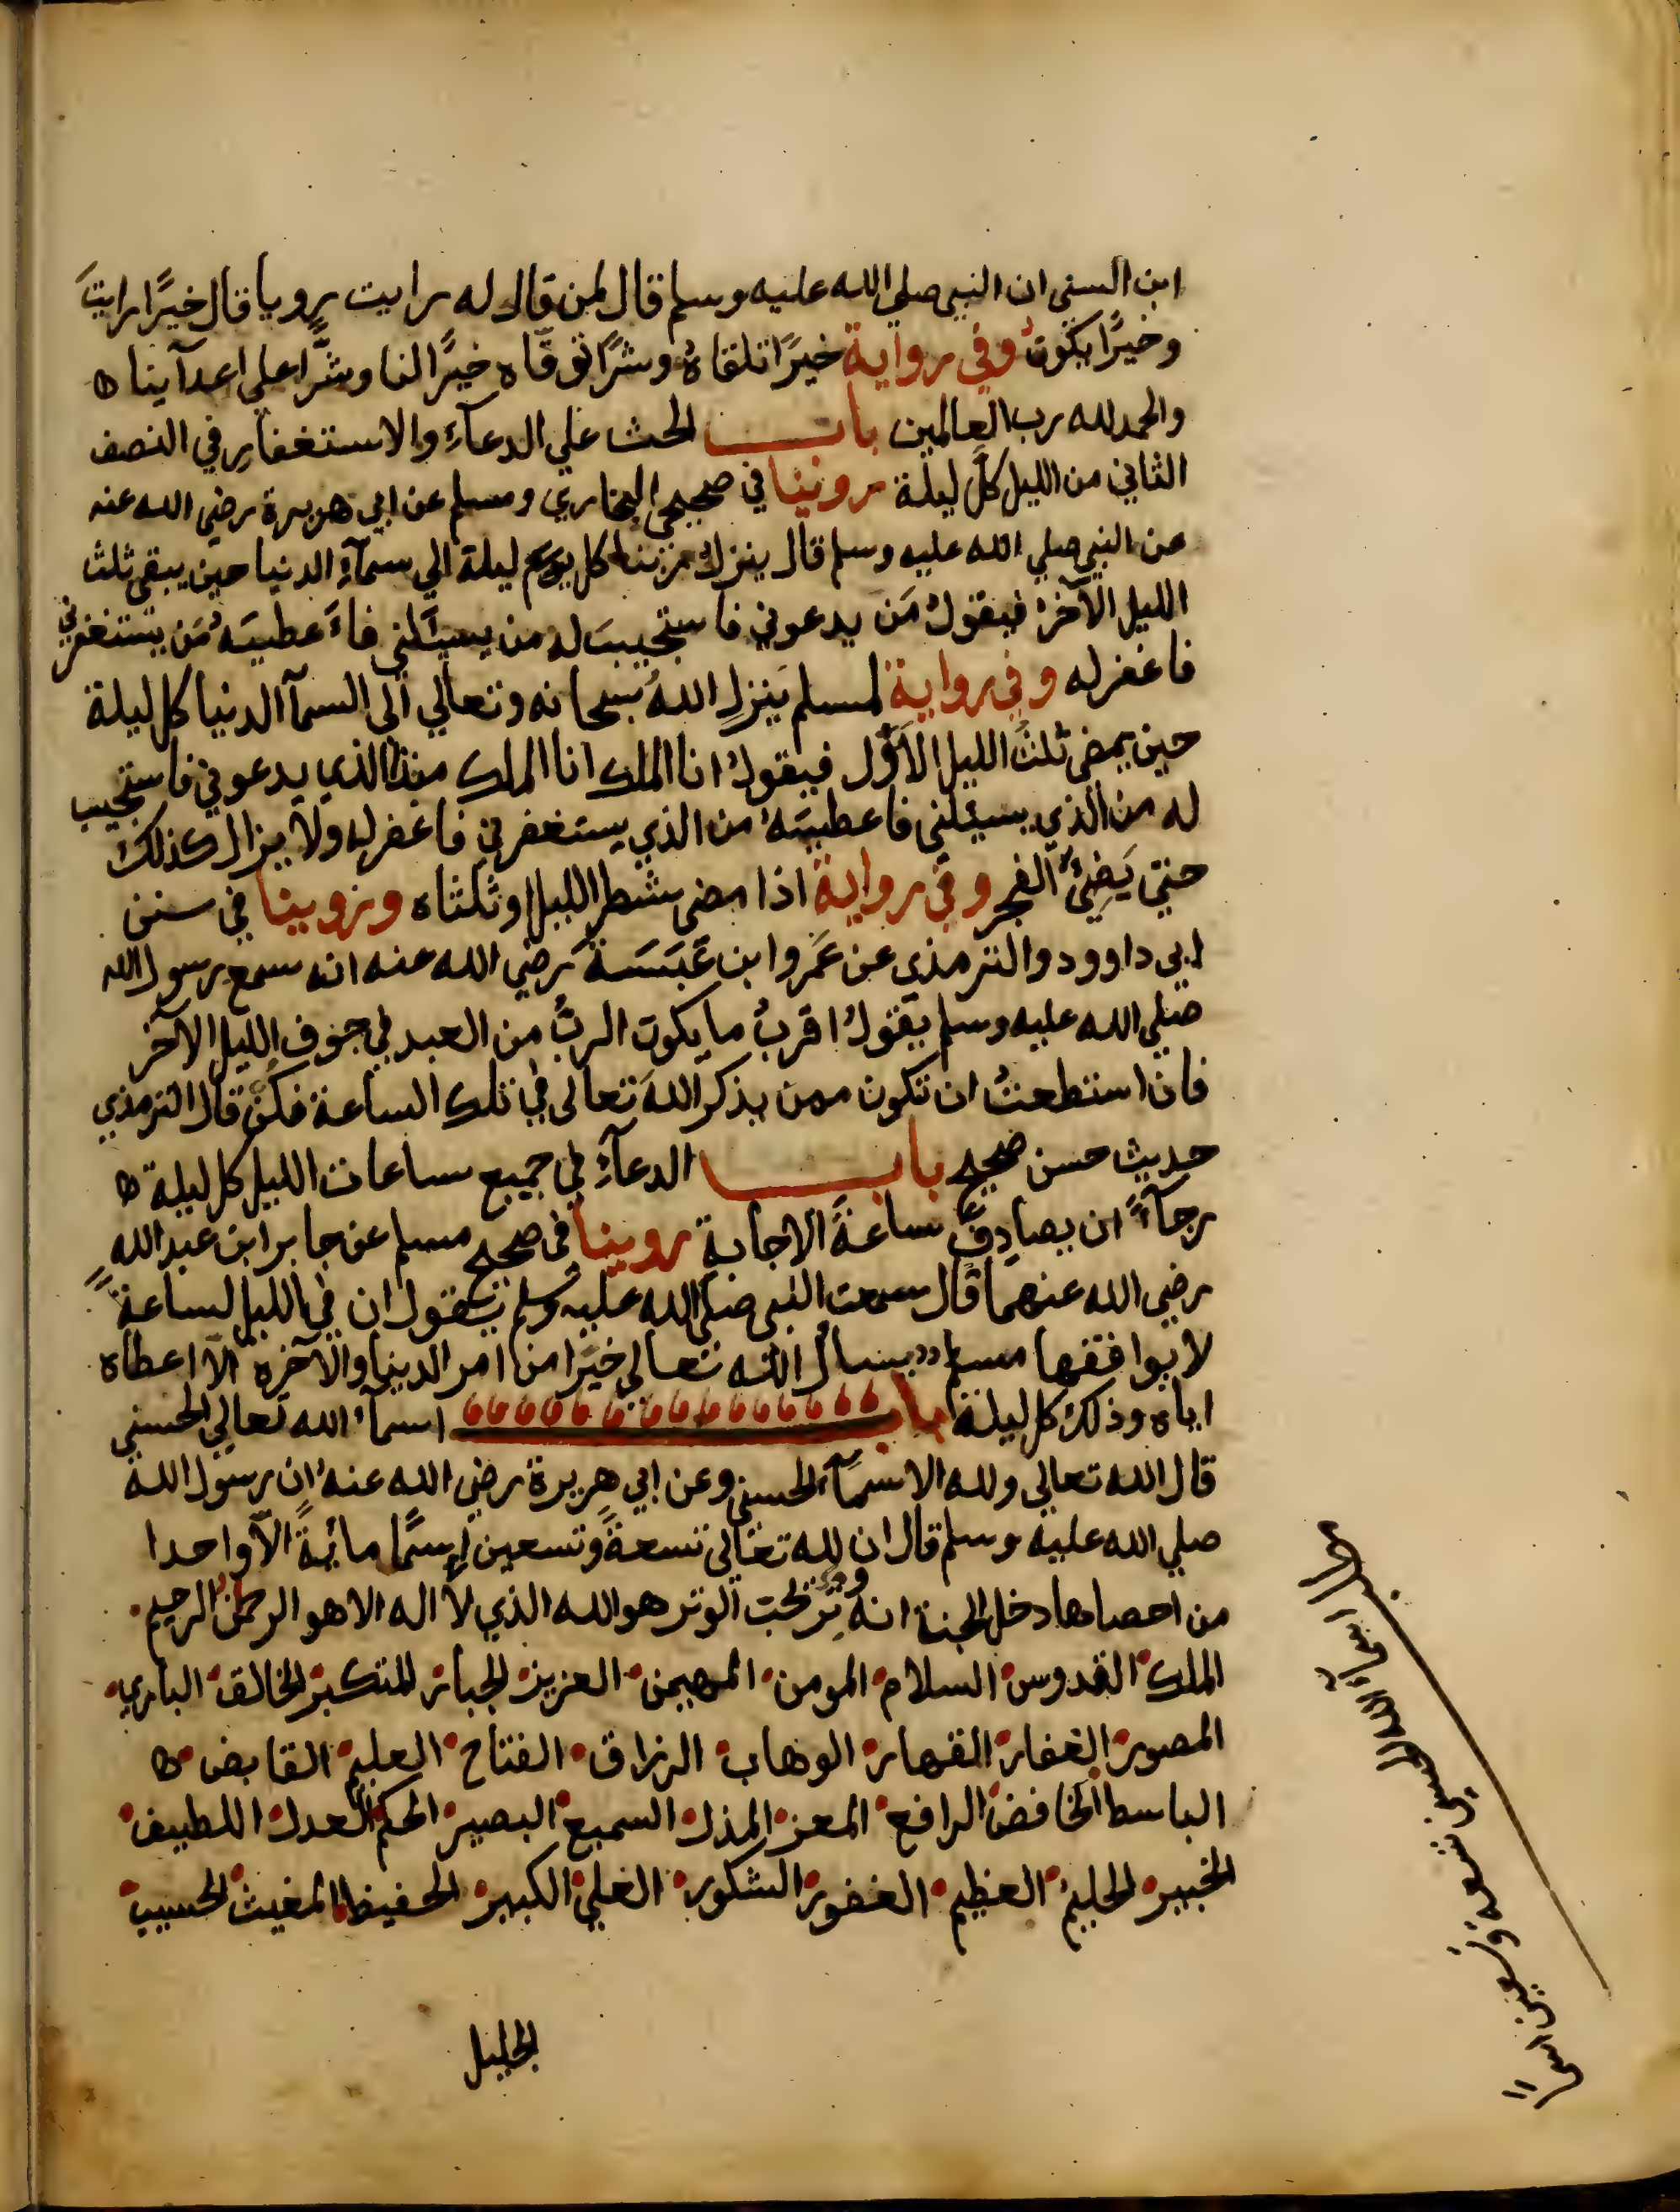 ابن السني ان النبي صلي الله عليه وسلم قال لمن قال له رايت رويا قال خيرًا رايتَ
وخيرًا يكون وفي رواية خيرًا تلقاهُ وشرًا توقّاه خيرًا لنا وشرًّا على اعدآينا ه
والحمد لله رب العالمين باب الحث علي الدعآءِ والاستغفارِ في النصف
الثاني من الليل كلَّ ليلة روينا في صحيحي البخاري ومسلم عن ابي هريرة رضي الله عنه
عن النبي صلي الله عليه وسلم قال ينزل ربنا كل يوم ليلة الي سمآءِ الدنيا حين يبقى ثلث
الليل الآخرُ فيقولُ مَن يدعوني فاستجيبَ له من يسئَلني فاَءعطيَهُ مَن يستغفرني
فاغفر له وفي رواية لمسلم يَنزل اللهُ سبحانه وتعالي الى السمآ الدنيا كل ليلة
حين يمضى ثلثُ الليل الاوّل فيقولُ انا الملك انا الملك من ذا الذي يدعوني فاستجيب
له من الذي يسئلني فاعطيَهُ من الذي يستغفرني فاغفر له ولا يزال كذلك
حتي يَضِئَ الفجر وفي رواية اذا مضى شطر الليل او ثلثاه وروينا في سنن
ابي داوود والترمذي عن عَمَروا ابن عَبَسَةَ رَضي الله عنه انه سمع رسول الله
صلي الله عليه وسلم يقولُ اقربُ ما يكون الربُّ من العبد في جوف الليل الآخر
فان استطعتُ ان تكون ممن يذكر اللهَ تعالى في تلك الساعة فكن قال الترمذي
حديث حسن صحيح باب الدعآءِ في جميع ساعات الليل كل ليلة ه
رجآءً ان يصادِفَ ساعةَ الاجابة روينا في صحيح مسلم عن جابر ابن عبد الله
رضي الله عنهما قال سمعت النبي صلي الله عليه وسلم يقول ان في الليل لساعةً
لا يوافقها مسلم يسال الله تعالي خيرًا من امر الدنيا والآخرة الّا اعطاه
اياه وذلك كل ليلة باب اسمآءُ الله تعالي الحسني
قال الله تعالي ولله الاسمآء الحسني وعن ابي هريرة رضي الله عنهُ ان رسول الله
صلي الله عليه وسلم قال ان لله تعالي تسعةً وتسعين اسمًا مائةً الّا واحدا
من احصاها دخل الجنة انهُ وِتر يحب الوتر هو الله الذي لا اله الا هو الرحمن الرحيم
الملك القدوس السلام المومن المهيمن العزيز الجبار المتكبر الخالق الباري
المصور الغفار القهار الوهاب الرزاق الفتاح العليم القابض ه
الباسط الخافض الرافع المعز المذل السميع البصير الحكم العدل اللطيف
الخبير الحليم العظيم الغفور الشكور العلي الكبير الحفيظ المغيث الحسيب
الجليل
اسمآء الله الحسنى تسعه وتسعين اسمًا